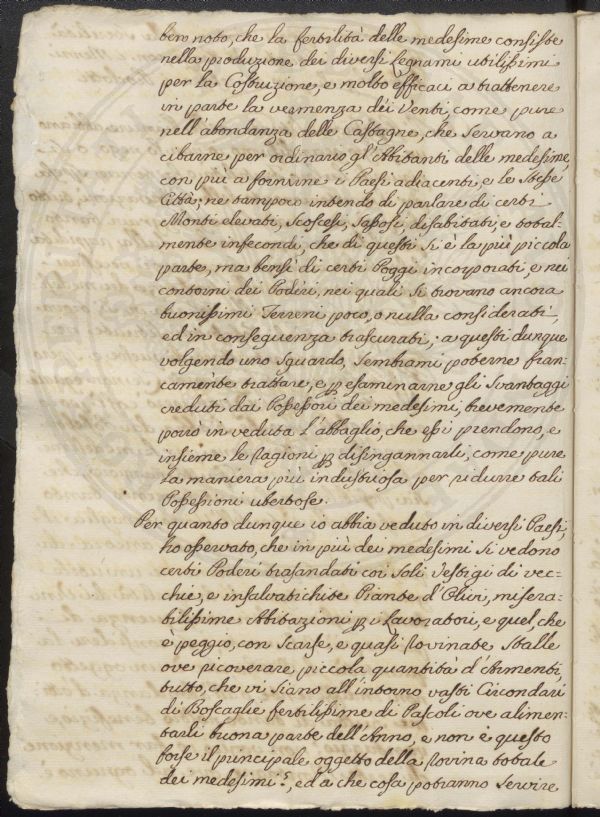 ben noto, che la fertilità delle medesime consiste
nella produzione dei diversi legnami utilissimi
per la Costruzione, e molto èfficaci a trattenere
in parte la vermenza dei Venti, come pure
nell'abondanza delle Castagne, che servano a
cibarne per ordinario gl'Abitanti delle medesime,
con più a fornirne i Paesi adiacenti, e le stesse
Città; ne tampoco intendo di parlare di certi
Monti elevati, Scoscesi, Sassosi, disabitati, e total-
mente infecondi, che di questi si è la più piccola
parte, ma bensì di certi Poggi incorporati, e nei
contorni dei Poderi, nei quali si trovano ancora
buonissimi Terreni poco, o nulla considerati,
ed in conseguenza trascurati; a questi dunque
volgendo uno sguardo, sembrami poterne fran-
camente trattare, e p esaminarne gli Svantaggi
creduti dai Possessori dei medesimi, brevemente
porrò in veduta l'abbaglio, che essi prendono, e
insieme le ragioni p disingannarli, come pure
la maniera più industriosa per ridurre tali
Possessioni ubertose.
Per quanto dunque io abbia veduto in diversi Paesi,
ho osservato, che in più dei medesimi si vedono
certi Poderi trasandati coi soli Vestigi di vec-
chie, e insalvatichite Piante d'Olivi, misera-
bilissime Abitazioni p i Lavoratori, e quel, che
è peggio, con Scarse, e quasi rovinate Stalle
ove ricoverare piccola quantità d'Armenti,
tutto, che vi siano all'intorno vasti Circondari
di Boscaglie fertilissime di Pascoli ove alimen-
tarli buona parte dell'Anno, e non è questo
forse il principale oggetto della rovina totale
dei medesimi?, ed a che cosa potranno servire